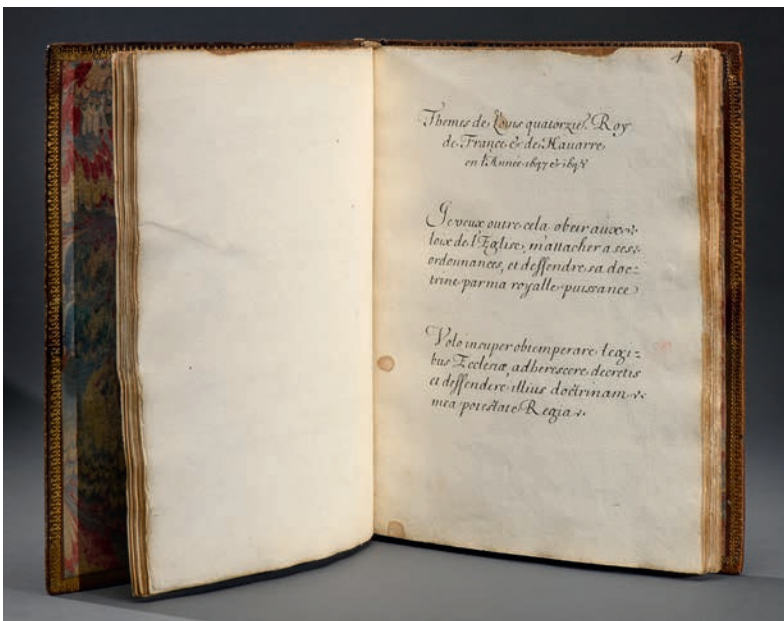 4
Themes de Louis quatorzie. Roy
de France & de Navarre
en l'Année 1647 & 1648
Je veux outre cela obeir aux
loix de l'Eglise, m'attacher a ses
ordonnances, et deffendre sa doc=
trine par ma royalle puissance
Volo insuper obtemperare legi=
bus Ecclesiæ, adherescere decretis
et deffendere illius doctrinam
mea potestate Regia